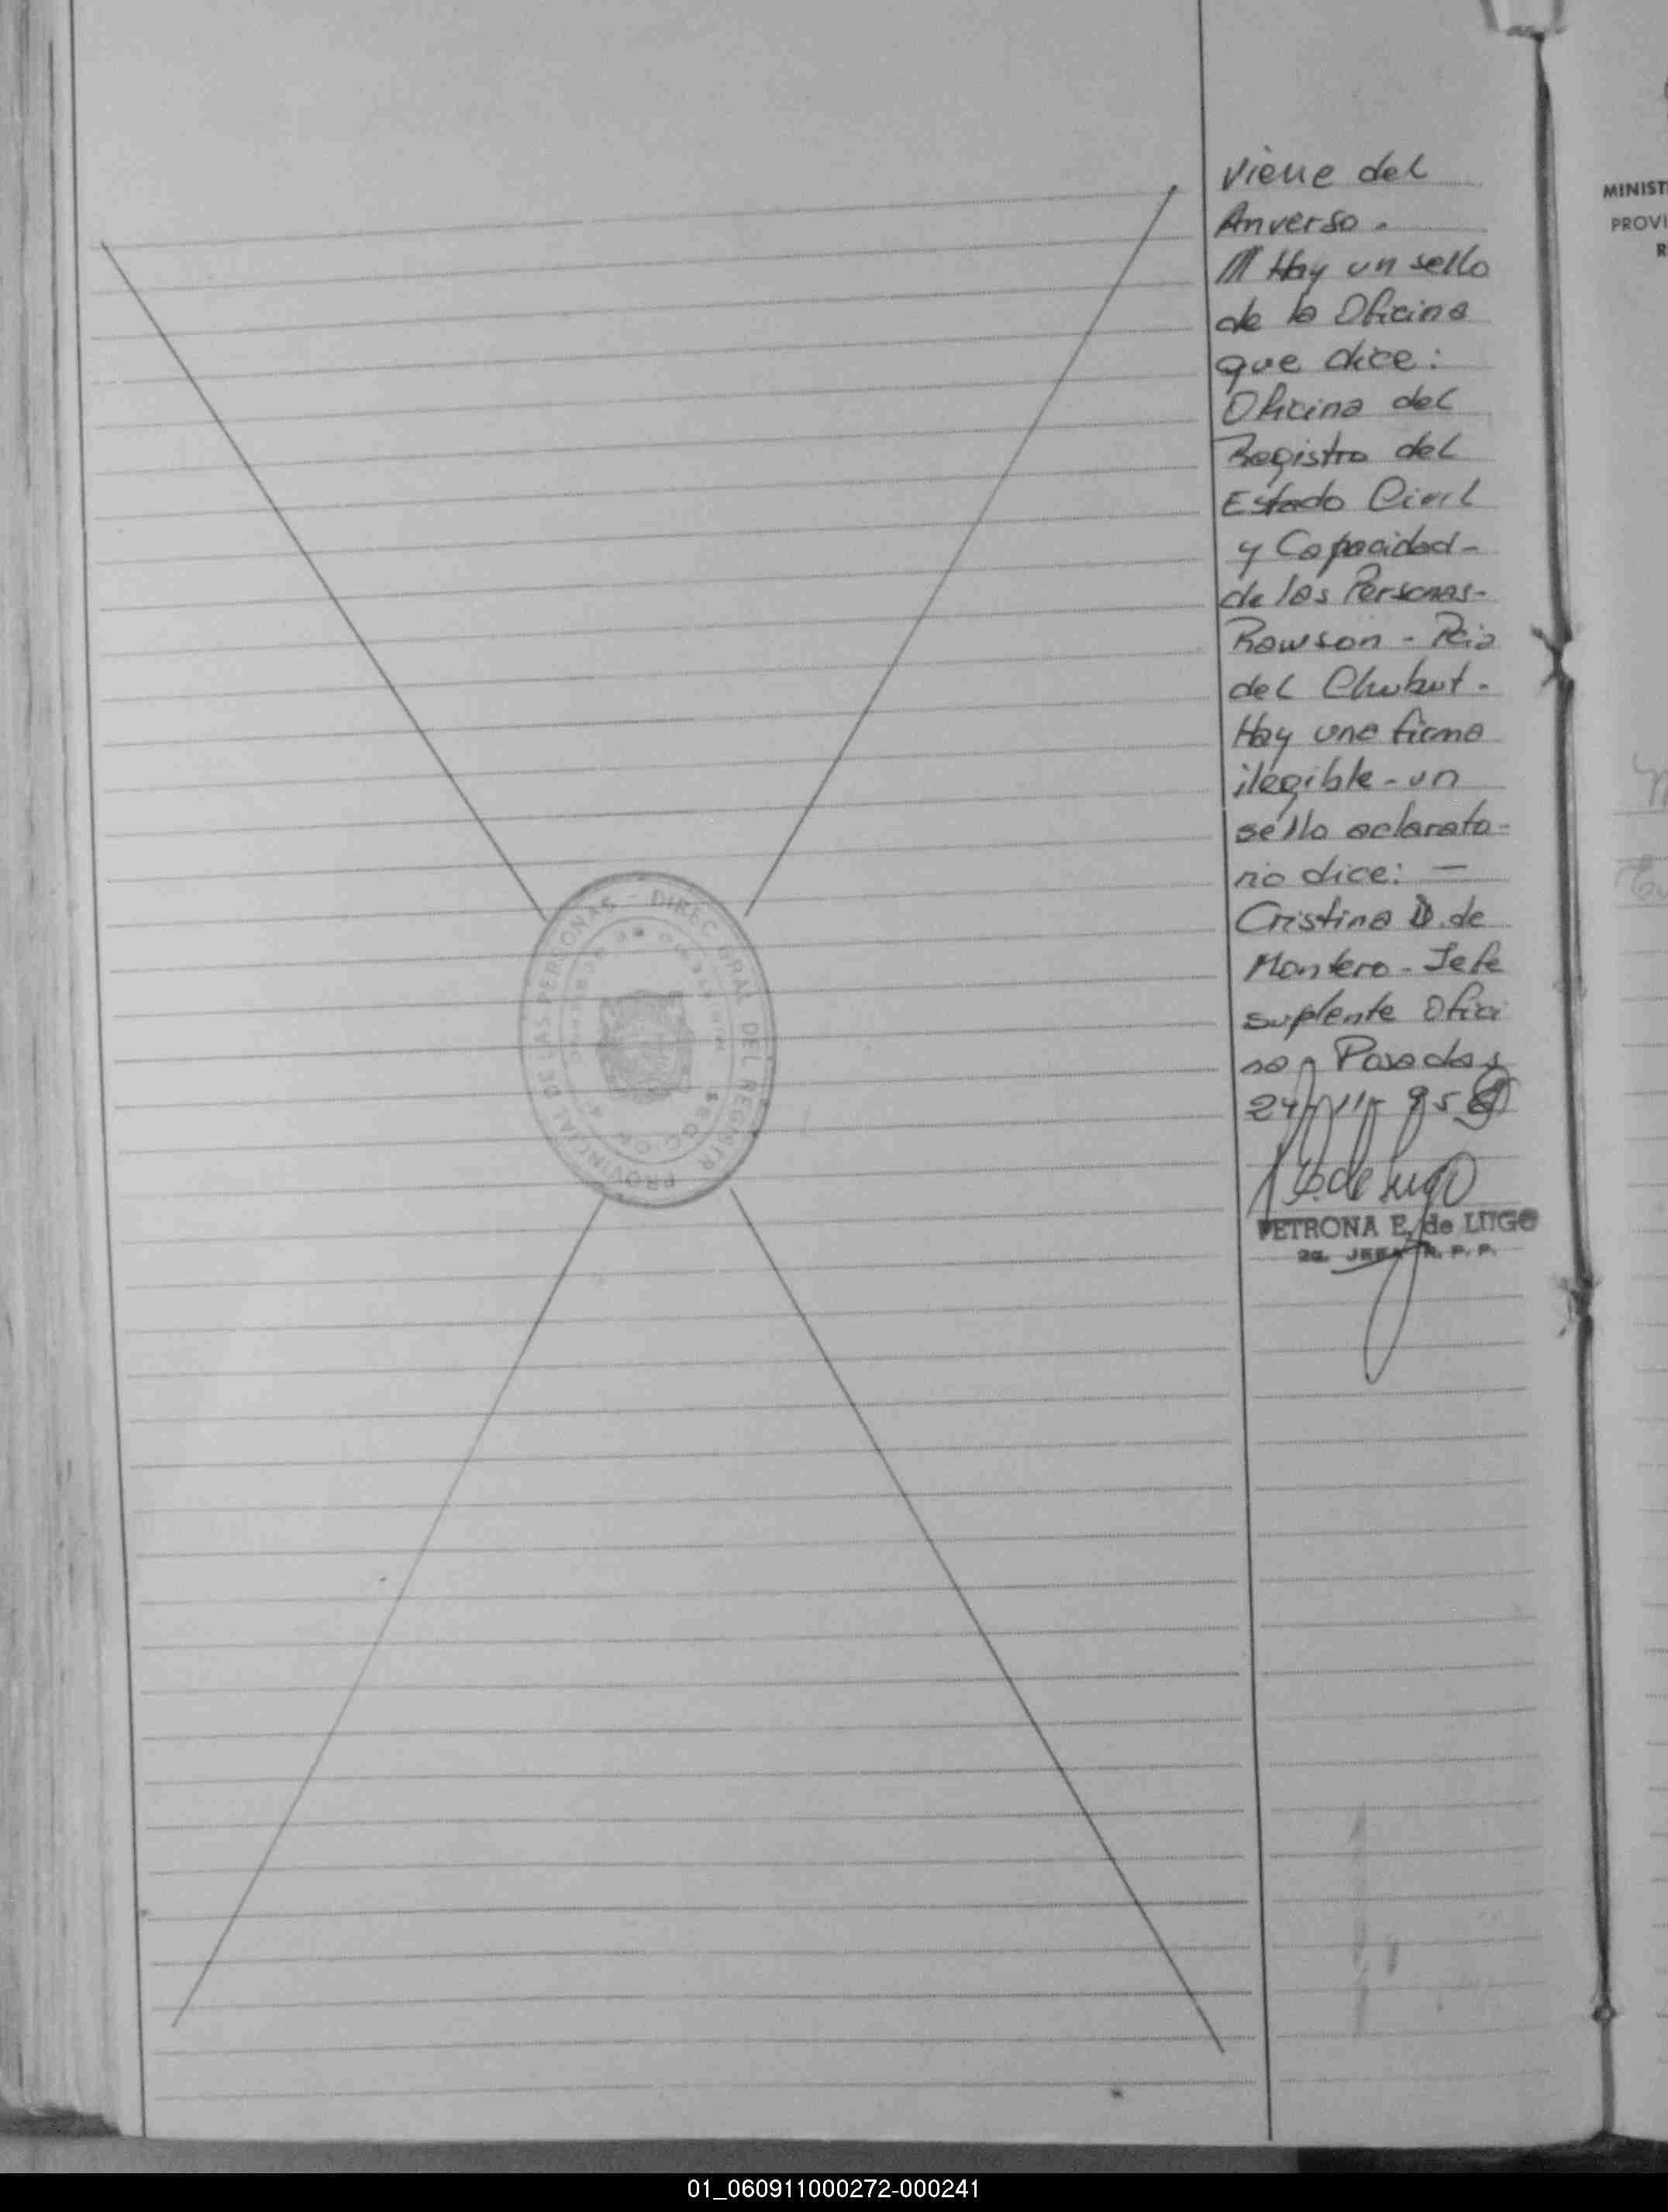 Viene del
Anverso.
Hay un sello
de la Oficina
que dice:
Oficina del
Registro del
Estado Civil
y Capacidad-
de las Personas-
Rawson - Pcia
del Chubut.
Hay una firma
ilegible-un
sello aclarato-
rio dice: —
Cristina D. de
Montero-Jefe
suplente Ofici
na Posadas
24-11-95
PETRONA E. de LUGO
2a. JEFA R. P. P.
PROVINCIAL DE LAS PERSONAS - DIREC. GRAL. DEL REGISTR
SECCION
MINIST
PROVI
R
01_060911000272-000241